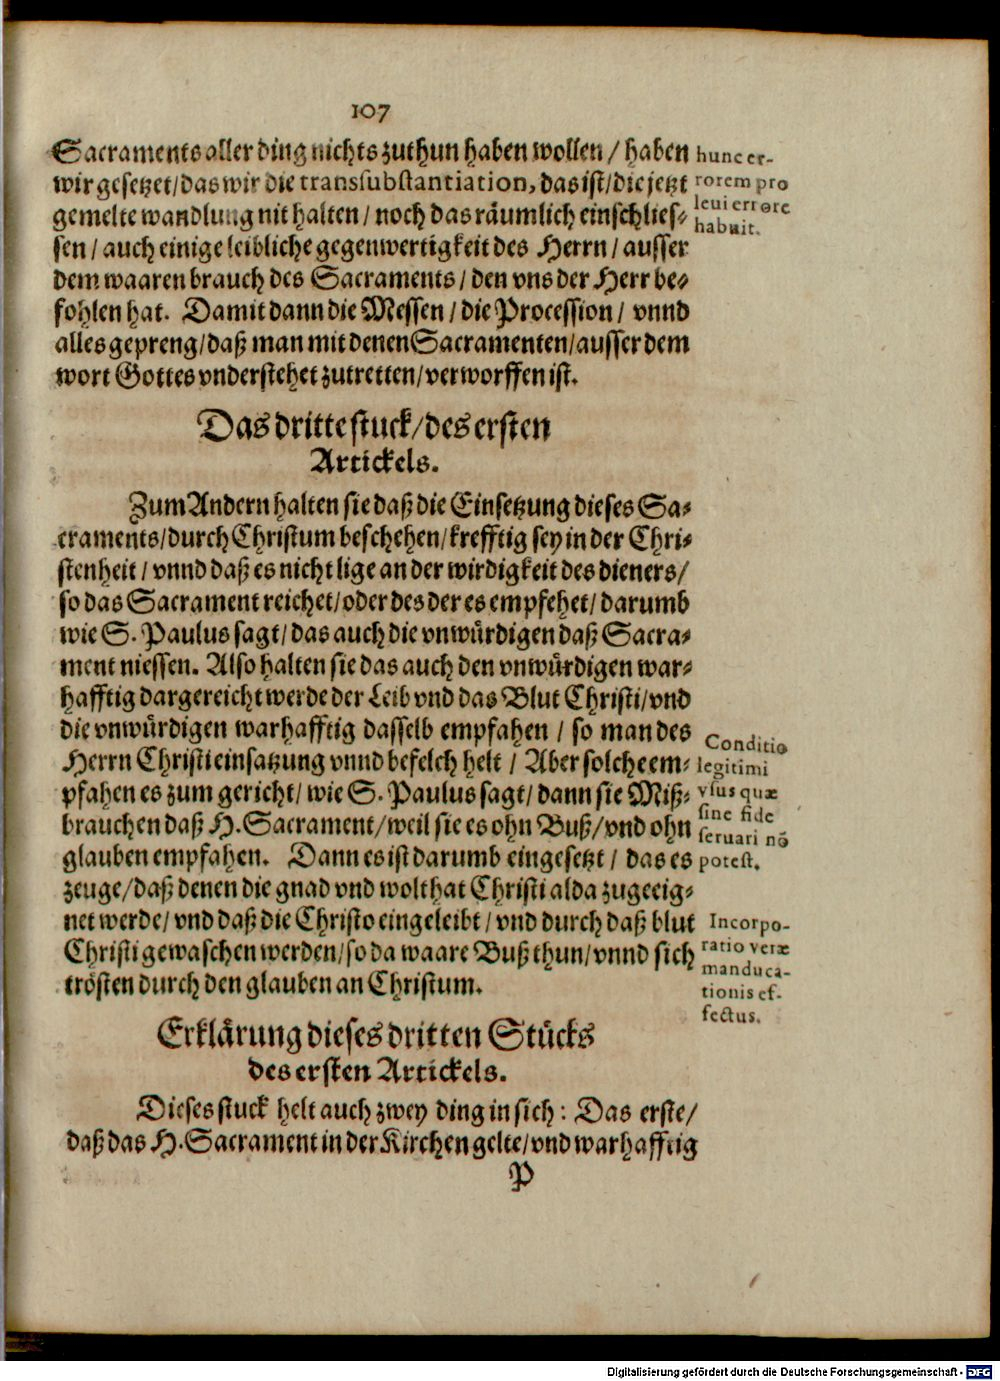 107
Sacraments aller ding nichts zuthun haben wollen / haben
wir gesetzet / das wir die transsubstantiation, das ist / die jetzt
gemelte wandlung nit halten / noch das räumlich einschlies-
sen / auch einige leibliche gegenwertigkeit des Herrn / ausser
dem waaren brauch des Sacraments / den vns der Herr be-
fohlen hat. Damit dann die Messen / die Procession / vnnd
alles gepreng / daß man mit denen Sacramenten / ausser dem
wort Gottes vnderstehet zutretten / verworffen ist.
hunc er-
rorem pro
leui errore
habuit.
Das dritte stuck / des ersten
Artickels.
Zum Andern halten sie daß die Einsetzung dieses Sa-
craments / durch Christum beschehen / krefftig sey in der Chri-
stenheit / vnnd daß es nicht lige an der wirdigkeit des dieners /
so das Sacrament reichet / oder des der es empfehet / darumb
wie S. Paulus sagt / das auch die vnwürdigen daß Sacra-
ment niessen. Also halten sie das auch den vnwürdigen war-
hafftig dargereicht werde der Leib vnd das Blut Christi / vnd
die vnwürdigen warhafftig dasselb empfahen / so man des
Herrn Christi einsatzung vnnd befelch helt / Aber solche em-
pfahen es zum gericht / wie S. Paulus sagt / dann sie Miß-
brauchen daß H. Sacrament / weil sie es ohn Buß / vnd ohn
glauben empfahen. Dann es ist darumb eingesetzt / das es
zeuge / daß denen die gnad vnd wolthat Christi alda zugeeig-
net werde / vnd daß die Christo eingeleibt / vnd durch daß blut
Christi gewaschen werden / so da waare Buß thun / vnnd sich
trösten durch den glauben an Christum.
Conditio
legitimi
vsus quæ
sine fide
seruari nõ
potest.
Incorpo-
ratio veræ
manduca-
tionis ef-
fectus.
Erklärung dieses dritten Stücks
des ersten Artickels.
Dieses stuck helt auch zwey ding in sich : Das erste /
daß das H. Sacrament in der Kirchen gelte / vnd warhafftig
P
Digitalisierung gefördert durch die Deutsche Forschungsgemeinschaft - DFG